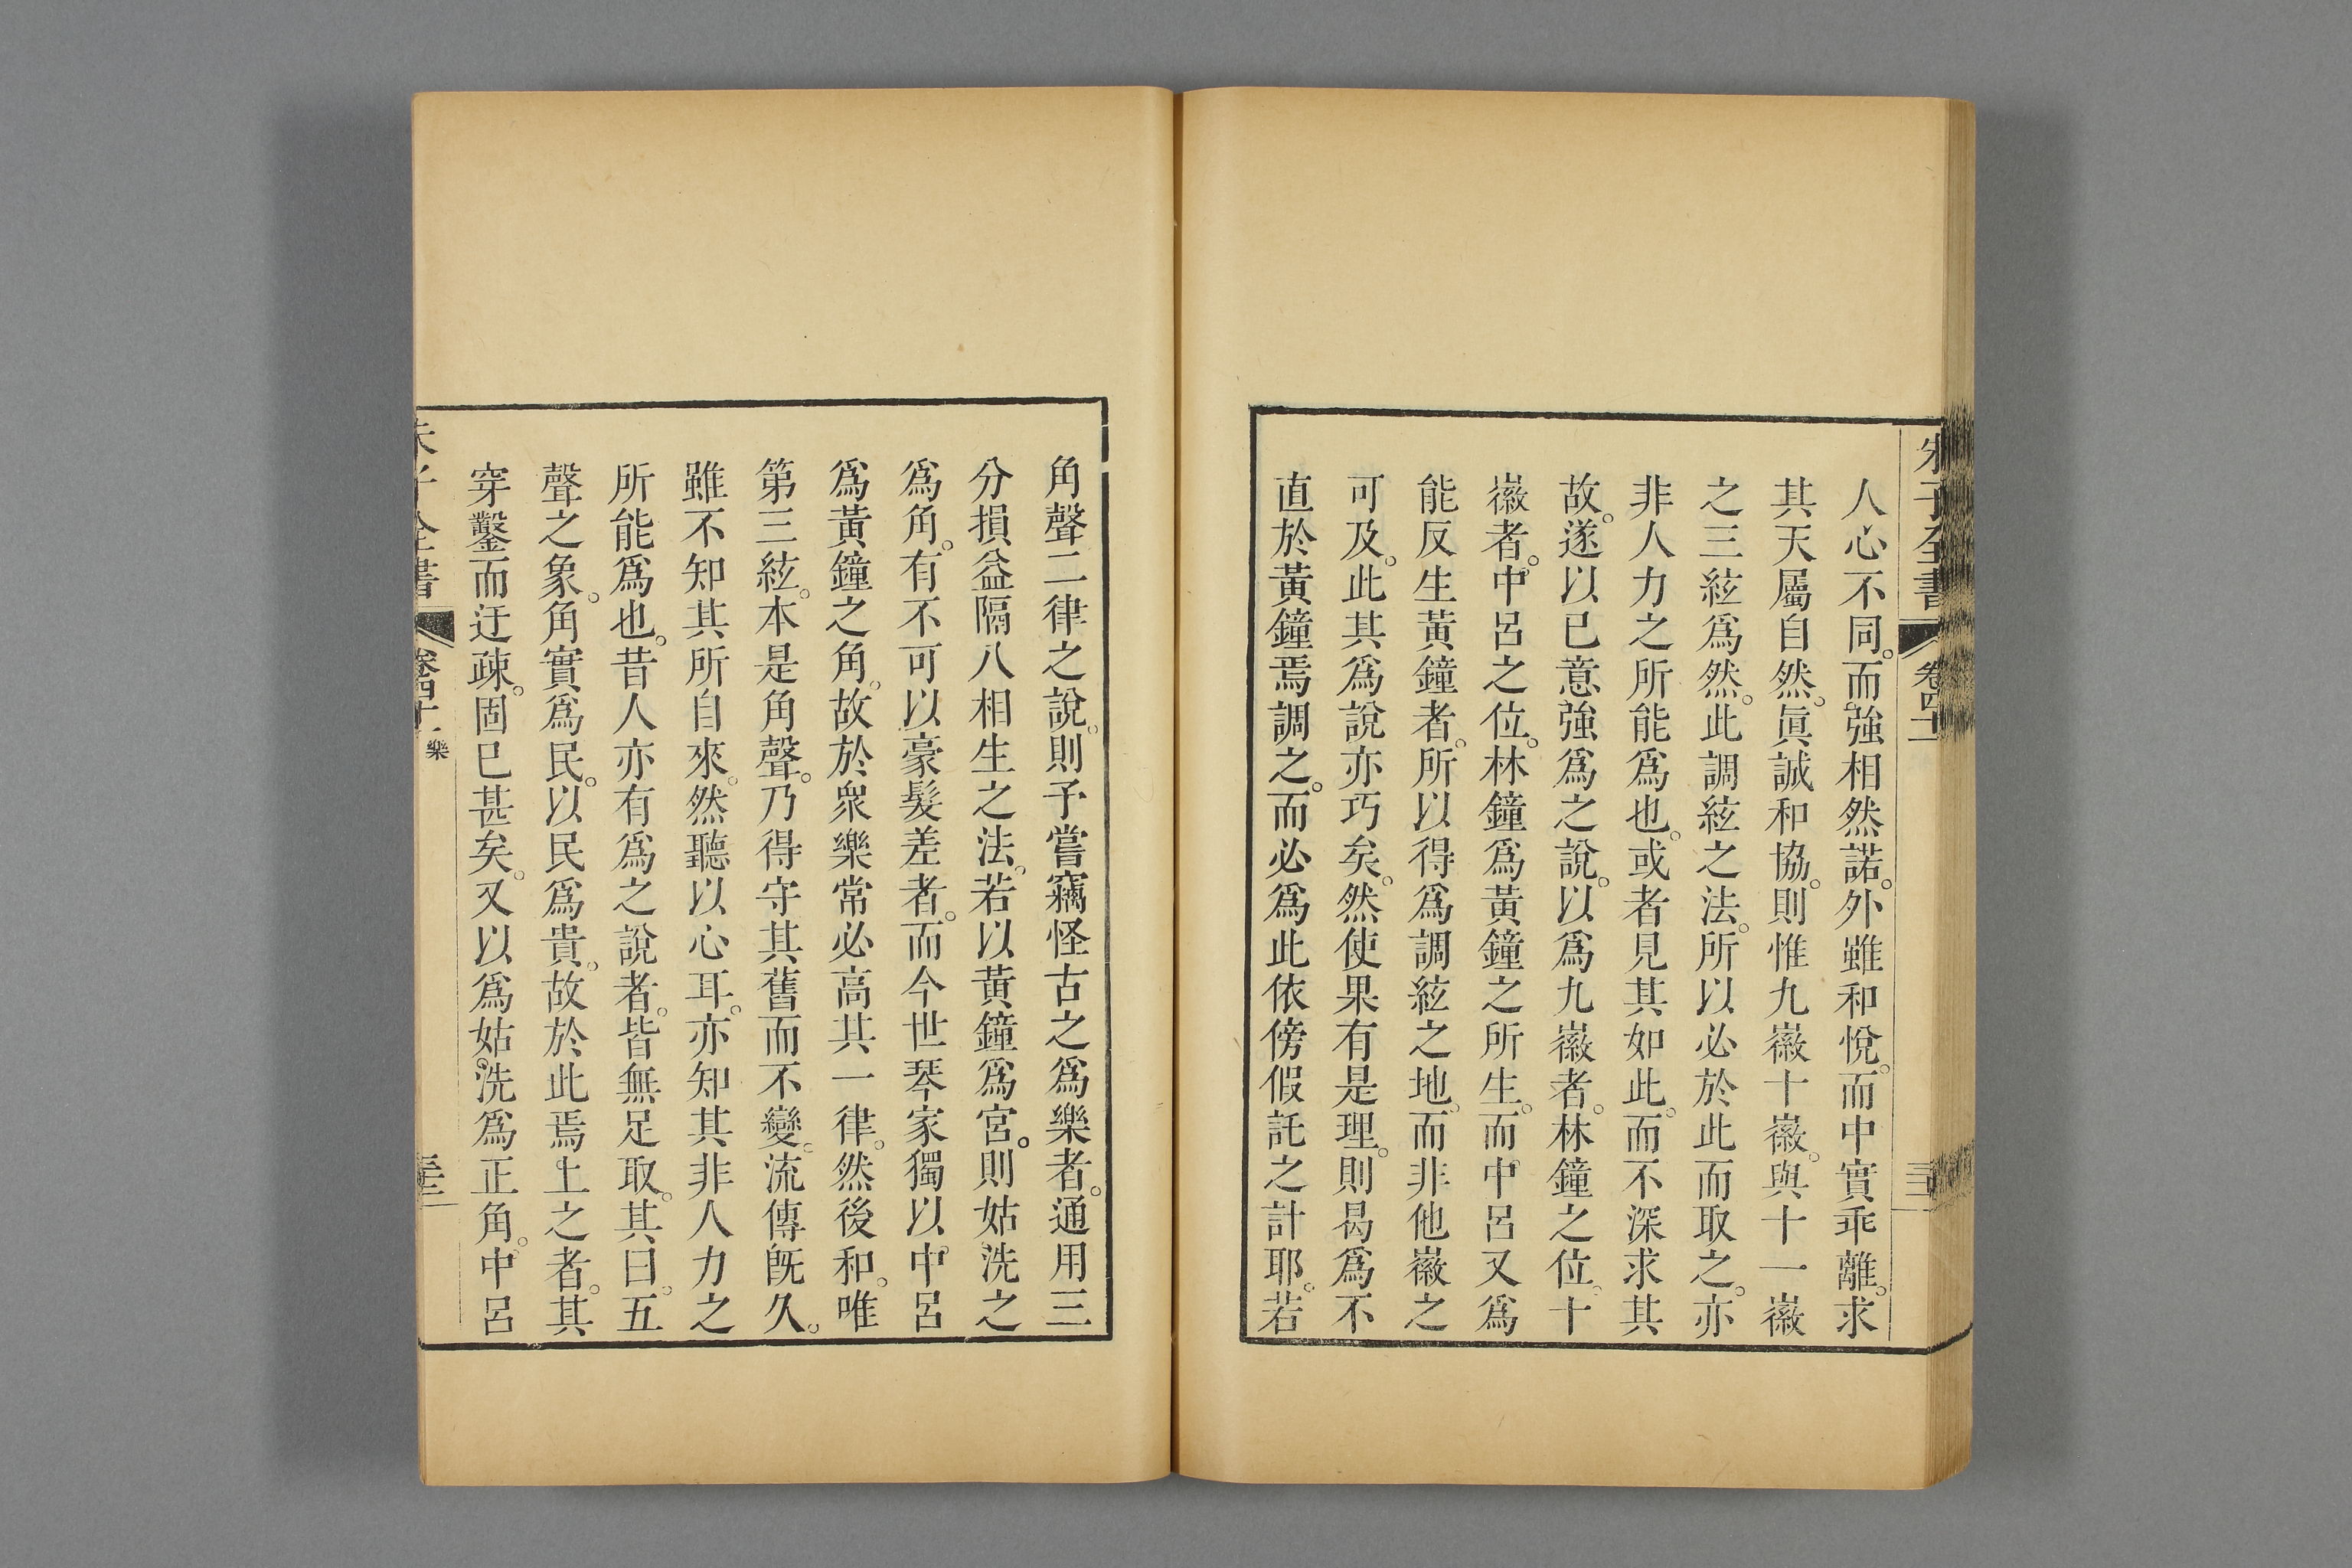 朱子全書 卷四十一 三十二
人心不同。而強相然諾。外雖和悅。而中實乖離。求
其天屬自然。眞誠和協。則惟九徽十徽。與十一徽
之三絃爲然。此調絃之法。所以必於此而取之。亦
非人力之所能爲也。或者見其如此。而不深求其
故。遂以已意強爲之說。以爲九徽者。林鐘之位。十
徽者。中呂之位。林鐘爲黃鐘之所生。而中呂又爲
能反生黃鐘者。所以得爲調絃之地。而非他徽之
可及。此其爲說亦巧矣。然使果有是理。則曷爲不
直於黃鐘焉調之。而必爲此依傍假託之計耶。若
角聲二律之說。則予嘗竊怪古之爲樂者。通用三
分損益隔八相生之法。若以黃鐘爲宮。則姑洗之
爲角。有不可以豪髮差者。而今世琴家獨以中呂
爲黃鐘之角。故於衆樂常必高其一律。然後和。唯
第三絃。本是角聲。乃得守其舊而不變。流傳旣久。
雖不知其所自來。然聽以心耳。亦知其非人力之
所能爲也。昔人亦有爲之說者。皆無足取。其曰。五
聲之象。角實爲民。以民爲貴。故於此焉上之者。其
穿鑿而迂疎。固已甚矣。又以爲姑洗爲正角。中呂
朱子全書 卷四十一 樂